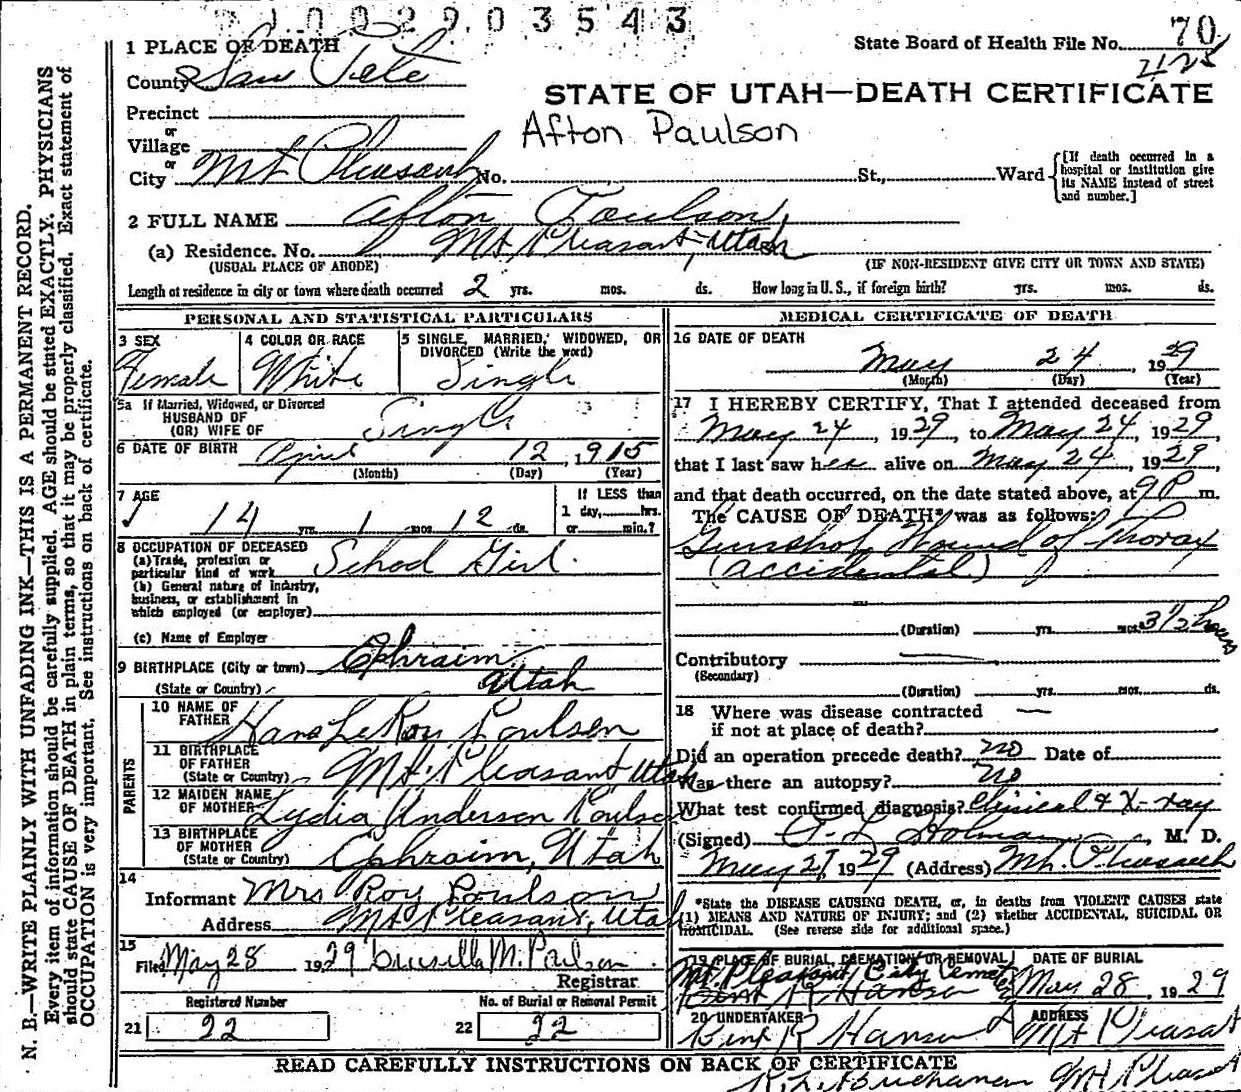 1002903543
70
State Board of Health File No.
425
1 PLACE OF DEATH
County San Pete
STATE OF UTAH—DEATH CERTIFICATE
Precinct
or
Village
Afton Paulson
or
City Mt Pleasant No. St., Ward
[If death occurred in a hospital or institution give its NAME instead of street and number.]
2 FULL NAME Afton Poulson,
(a) Residence. No. Mt. Pleasant, Utah
(USUAL PLACE OF ABODE) (IF NON-RESIDENT GIVE CITY OR TOWN AND STATE)
Length of residence in city or town where death occurred 2 yrs. mos. ds. How long in U. S., if foreign birth? yrs. mos. ds.
PERSONAL AND STATISTICAL PARTICULARS
3 SEX
Female
4 COLOR OR RACE
White
5 SINGLE, MARRIED, WIDOWED, OR DIVORCED (Write the word)
Single
5a If Married, Widowed, or Divorced
HUSBAND OF
(OR) WIFE OF
Single
6 DATE OF BIRTH April 12, 1915
(Month) (Day) (Year)
7 AGE
14 yrs. 1 mos. 12 ds.
If LESS than
1 day, hrs.
or min.?
8 OCCUPATION OF DECEASED
(a) Trade, profession or
particular kind of work School Girl.
(b) General nature of industry,
business, or establishment in
which employed (or employer)
(c) Name of Employer
9 BIRTHPLACE (City or town) Ephraim
(State or Country) Utah
PARENTS
10 NAME OF
FATHER Hans LeRoy Poulsen
11 BIRTHPLACE
OF FATHER
(State or Country) Mt. Pleasant Utah
12 MAIDEN NAME
OF MOTHER Lydia Anderson Poulson
13 BIRTHPLACE
OF MOTHER
(State or Country) Ephraim, Utah
14
Informant Mrs Roy Poulson
Address Mt Pleasant, Utah
15
Filed May 28 1929 M. Paulson
Registrar
Registered Number
21 22
No. of Burial or Removal Permit
22 22
MEDICAL CERTIFICATE OF DEATH
16 DATE OF DEATH
May 24, 1929
(Month) (Day) (Year)
17 I HEREBY CERTIFY, That I attended deceased from
May 24, 1929, to May 24, 1929,
that I last saw her alive on May 24, 1929,
and that death occurred, on the date stated above, at 9 P m.
The CAUSE OF DEATH* was as follows:
Gunshot Wound of Thorax
(accidental)
(Duration) yrs. mos. 3 1/2 hours
Contributory
(Secondary)
(Duration) yrs. mos. ds.
18 Where was disease contracted
if not at place of death?
Did an operation precede death? no Date of
Was there an autopsy? no
What test confirmed diagnosis? Clinical & X-ray
(Signed) Holman, M. D.
May 27, 1929 (Address) Mt. Pleasant
*State the DISEASE CAUSING DEATH, or, in deaths from VIOLENT CAUSES state
(1) MEANS AND NATURE OF INJURY; and (2) whether ACCIDENTAL, SUICIDAL OR
HOMICIDAL. (See reverse side for additional space.)
19 PLACE OF BURIAL, CREMATION OR REMOVAL
Mt. Pleasant City Cemet
DATE OF BURIAL
May 28, 1929
20 UNDERTAKER
R Hansen
ADDRESS
Mt Pleasant
READ CAREFULLY INSTRUCTIONS ON BACK OF CERTIFICATE
Buchanan Mt Pleasant
N. B.—WRITE PLAINLY WITH UNFADING INK—THIS IS A PERMANENT RECORD.
Every item of information should be carefully supplied. AGE should be stated EXACTLY. PHYSICIANS
should state CAUSE OF DEATH in plain terms, so that it may be properly classified. Exact statement of
OCCUPATION is very important. See instructions on back of certificate.